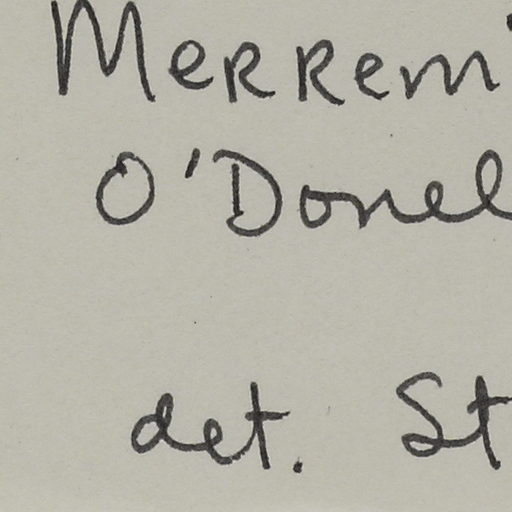 Merremi
O'Donel
det. St